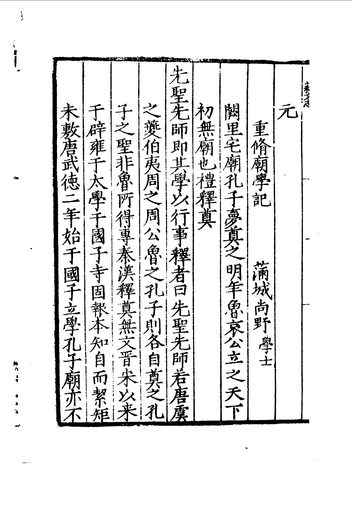 元
重脩廟學記 蒲城尚野學士
闕里宅廟孔子夢奠之明年魯哀公立之天下
初無廟也禮釋奠
先聖先師即其學以行事釋者曰先聖先師若唐虞
之夔伯夷周之周公魯之孔子則各自奠之孔
子之聖非魯所得專秦漢釋奠無文晋宋以来
于辟雍于太學于國子寺固報本知自而絜矩
未敷唐武德二年始于國子立學孔子廟亦不